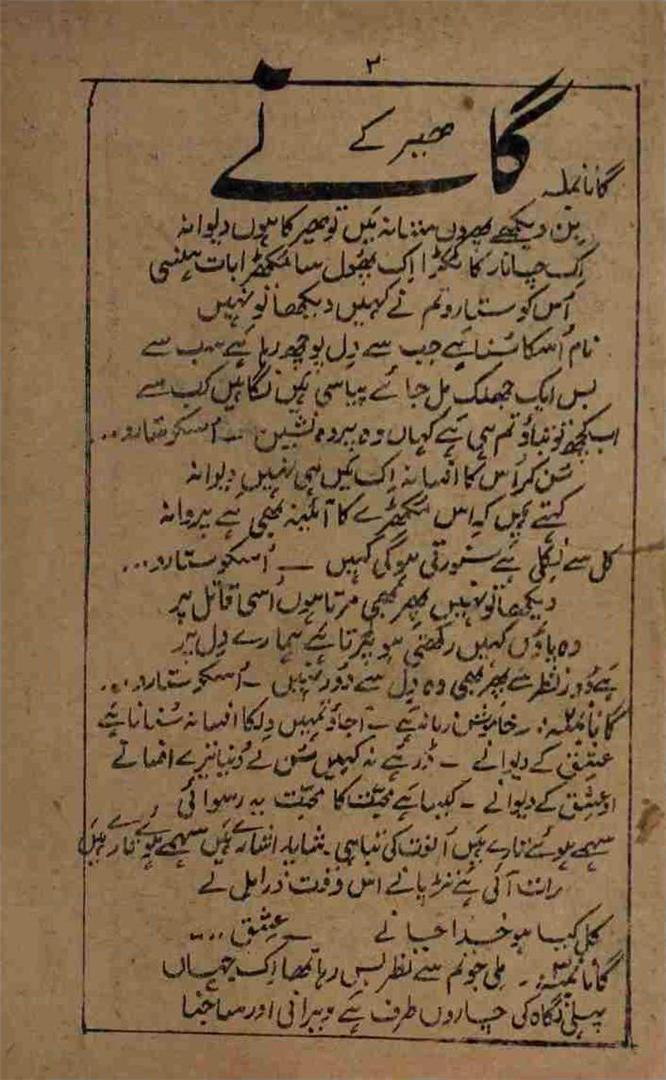 ۳
ہیر کے
گانے
گانا نمبر ۱
بن دیکھے پھروں مستانہ میں تو ہیر کا ہوں دیوانہ
اِک چاند کا ٹکڑا اِک پھول سا مکھڑا
اُس کو ستارو تم نے کہیں دیکھا تو نہیں
نام اُسکا سُنا ہے جب سے دِل پوچھ رہا ہے سب سے
بس ایک جھلک مل جائے پیاسی ہیں نگاہیں کب سے
اب کچھ تو بتاؤ تم ہی ہے کہاں وہ پردہ نشین ۔ اُسکو ستارو...
سُن کر اُس کا افسانہ اِک میں ہی نہیں دیوانہ
کہتے ہیں کہ اِس مُکھڑے کا آئینہ بھی ہے پروانہ
کل سے نِکلی ہے سنورتی ہوگی کہیں ۔ اُسکو ستارو...
دیکھا تو نہیں پھر بھی مرتا ہوں اُسی قاتل پر
وہ پاؤں کہیں رکھتی ہو پڑتا ہے ہمارے دِل پر
ہے دُور نظر سے پھر بھی وہ دِل سے دُور نہیں ۔ اُسکو ستارو...
گانا نمبر ۲: ۔ خاموش زمانہ ہے ۔ آجاؤ تمہیں دِلکا افسانہ سُنانا ہے
عشق کے دیوانے ۔ ڈر ہے نہ کہیں سُن لے دُنیا تیرے افسانے
او عشق کے دیوانے ۔ کیسا ہے محبت کا محبت یہ رسوائی
سہمے ہوئے تارے ہیں اُلفت کی تباہی ۔ شاید اشارے ہیں سہمے ہوئے تارے ہیں
رات آئی ہے تڑپانے اس وقت ذرا مل لے
کل کیا ہو خدا جانے ۔ عشق ....
گانا نمبر ۳: ۔ ملی جو تم سے نظر بس رہا تھا اِک جہاں
پہلی نگاہ کی چاروں طرف ہے ویرانی اور ساجنا